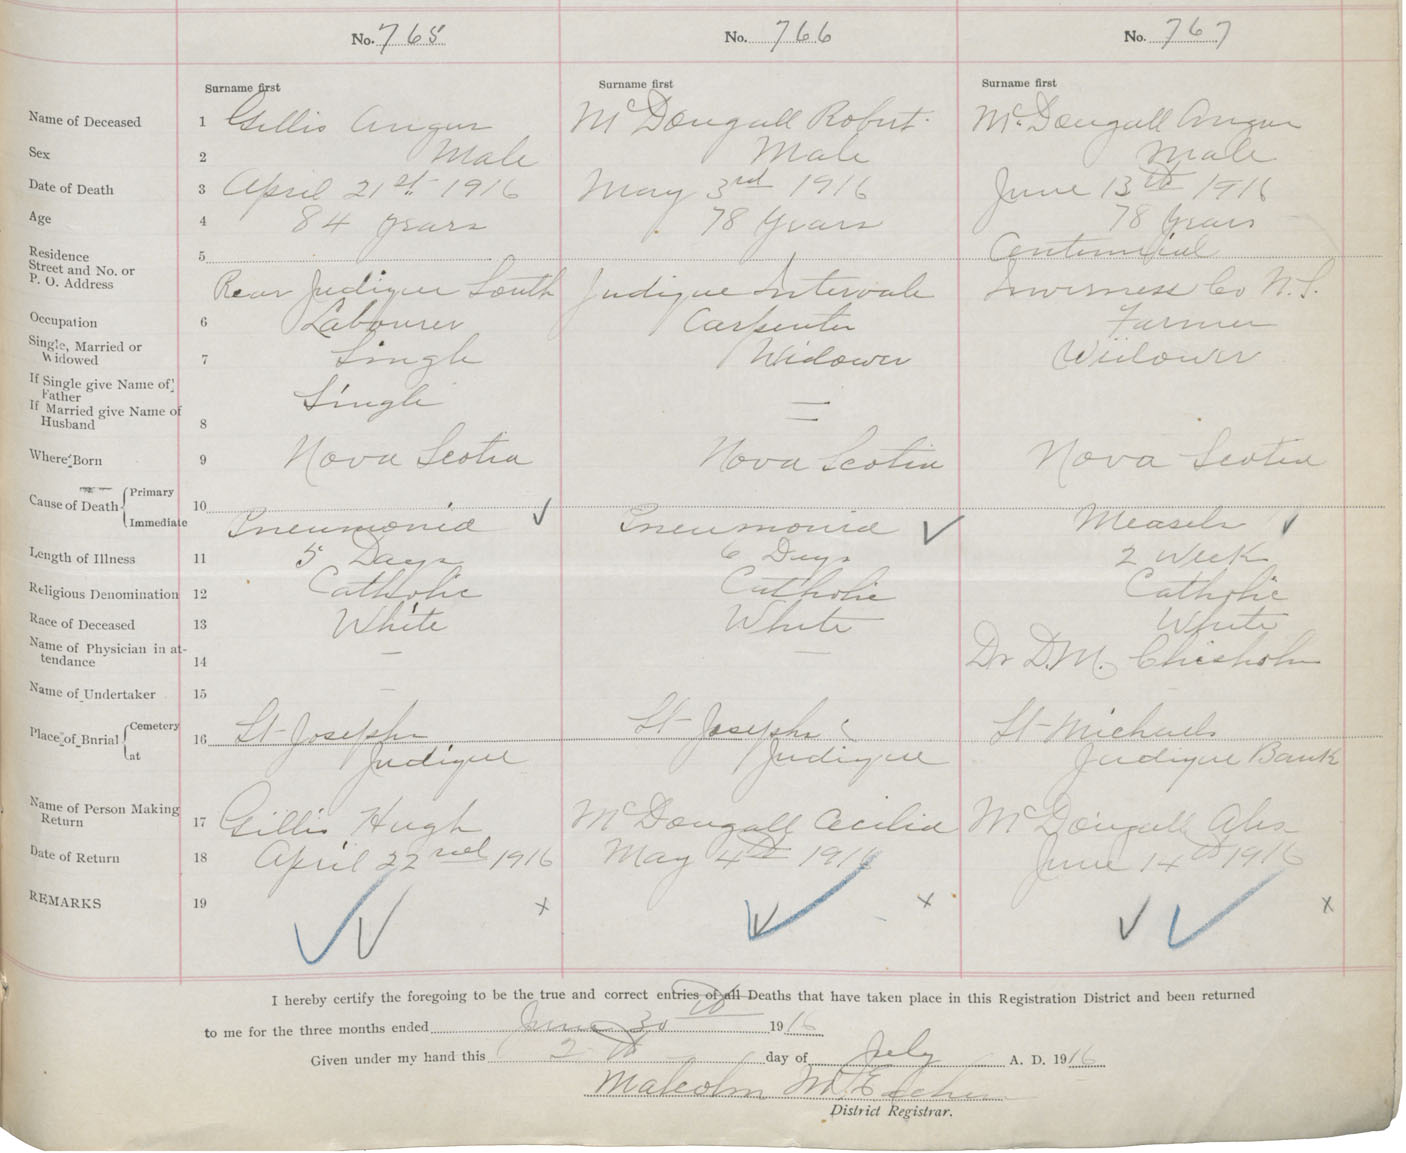 No. 765 No. 766 No. 767
Surname first Surname first Surname first
Name of Deceased 1 Gillis Angus McDougall Robert McDougall Angus
Sex 2 Male Male Male
Date of Death 3 April 21st 1916 May 3rd 1916 June 13th 1916
Age 4 84 years 78 Years 78 Years
Residence 5 Centennial
Street and No. or
P. O. Address Rear Judique South Judique Intervale Inverness Co N.S.
Occupation 6 Labourer Carpenter Farmer
Single, Married or
Widowed 7 Single Widower Widower
If Single give Name of
Father Single
If Married give Name of
Husband 8
Where Born 9 Nova Scotia Nova Scotia Nova Scotia
Cause of Death Primary 10
Immediate Pneumonia Pneumonia Measels
Length of Illness 11 5 Days 6 Days 2 Week
Religious Denomination 12 Catholic Catholic Catholic
Race of Deceased 13 White White White
Name of Physician in at-
tendance 14 — — Dr D.M. Chisholm
Name of Undertaker 15 —
Place of Burial Cemetery 16 St Josephs St Josephs St Michaels
at Judique Judique Judique Bank
Name of Person Making
Return 17 Gillis Hugh McDougall Cecilia McDougall Alex
Date of Return 18 April 22nd 1916 May 4th 1916 June 14th 1916
REMARKS 19 x x x
I hereby certify the foregoing to be the true and correct entries of all Deaths that have taken place in this Registration District and been returned
to me for the three months ended June 30th 1916
Given under my hand this 2 day of July A. D. 1916
Malcolm McEachern
District Registrar.